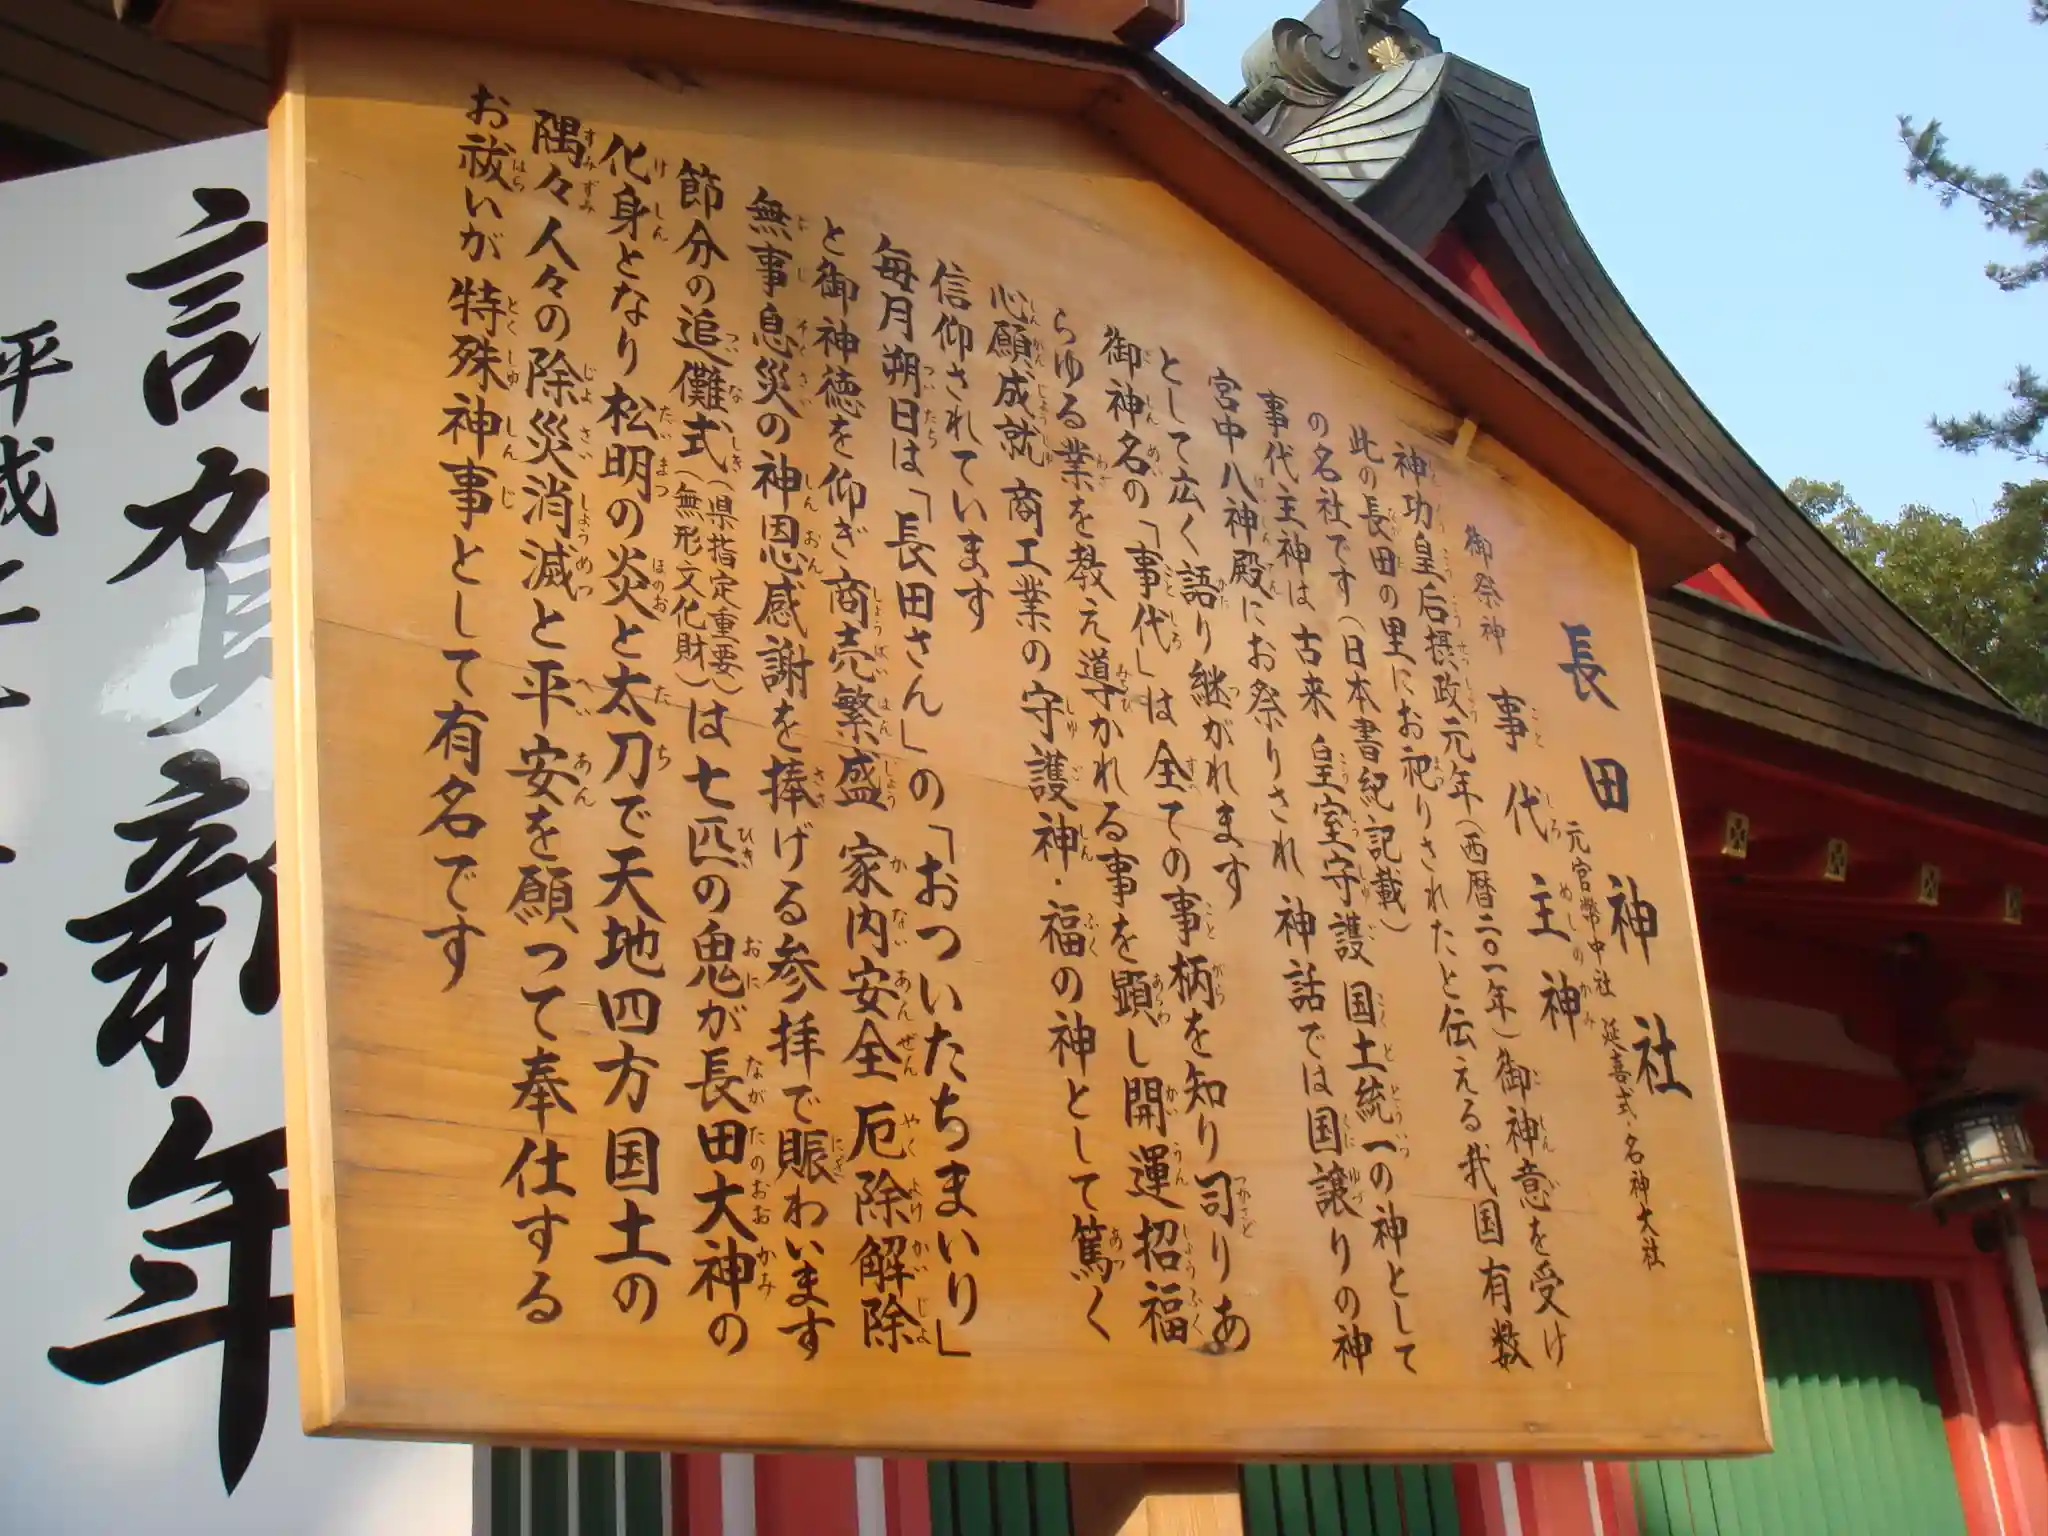 長田神社
元官幣中社 延喜式・名神大社
御祭神 事代主神
神功皇后摂政元年（西暦二〇一年）御神意を受け
此の長田の里にお祀りされたと伝える我国有数
の名社です（日本書紀記載）
事代主神は 古来 皇室守護 国土統一の神として
宮中八神殿にお祭りされ 神話では国譲りの神
として広く語り継がれます
御神名の「事代」は 全ての事柄を知り司りあ
らゆる業を教え導かれる事を顕し開運招福
心願成就 商工業の守護神・福の神として篤く
信仰されています
毎月朔日は「長田さん」の「おついたちまいり」
と御神徳を仰ぎ 商売繁盛 家内安全 厄除解除
無事息災の神恩感謝を捧げる参拝で賑わいます
節分の追儺式（県指定重要無形文化財）は七匹の鬼が長田大神の
化身となり 松明の炎と太刀で天地四方国土の
隅々 人々の除災消滅と平安を願って奉仕する
お祓いが 特殊神事として有名です
賀新年
平成